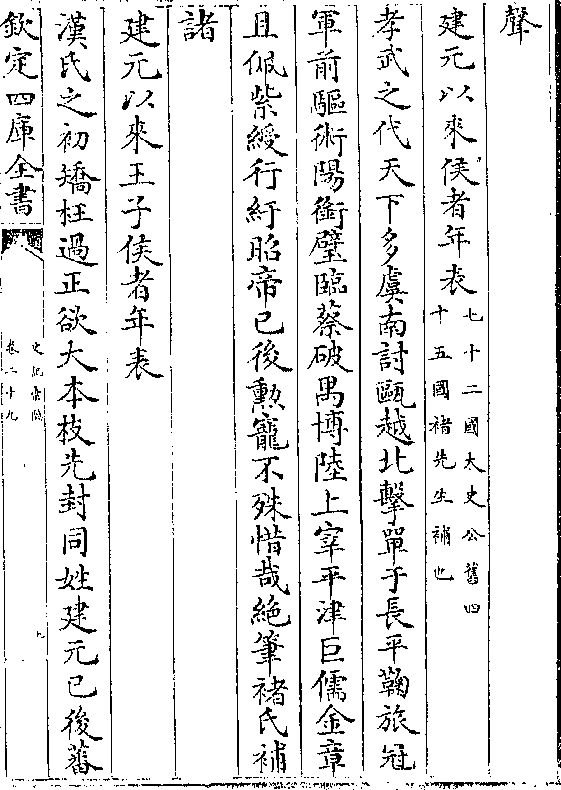 聲
建元以來侯者年表
七十二國太史公舊四
十五國褚先生補也
孝武之代天下多虞南討甌越北擊單于長平鞠旅冠
軍前驅術陽銜璧臨蔡破禺博陸上宰平津巨儒金章
且佩紫綬行紆昭帝已後勲寵不殊惜哉絶筆褚氏補
諸
建元以來王子侯者年表
漢氏之初矯枉過正欲大本枝先封同姓建元已後蕃
欽定四庫全書
史記索隱
卷二十九